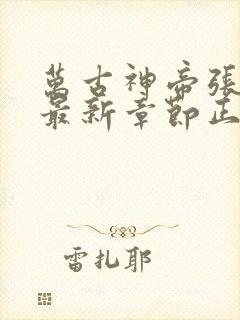 萬古神帝張
最新章節正
雷扎耶